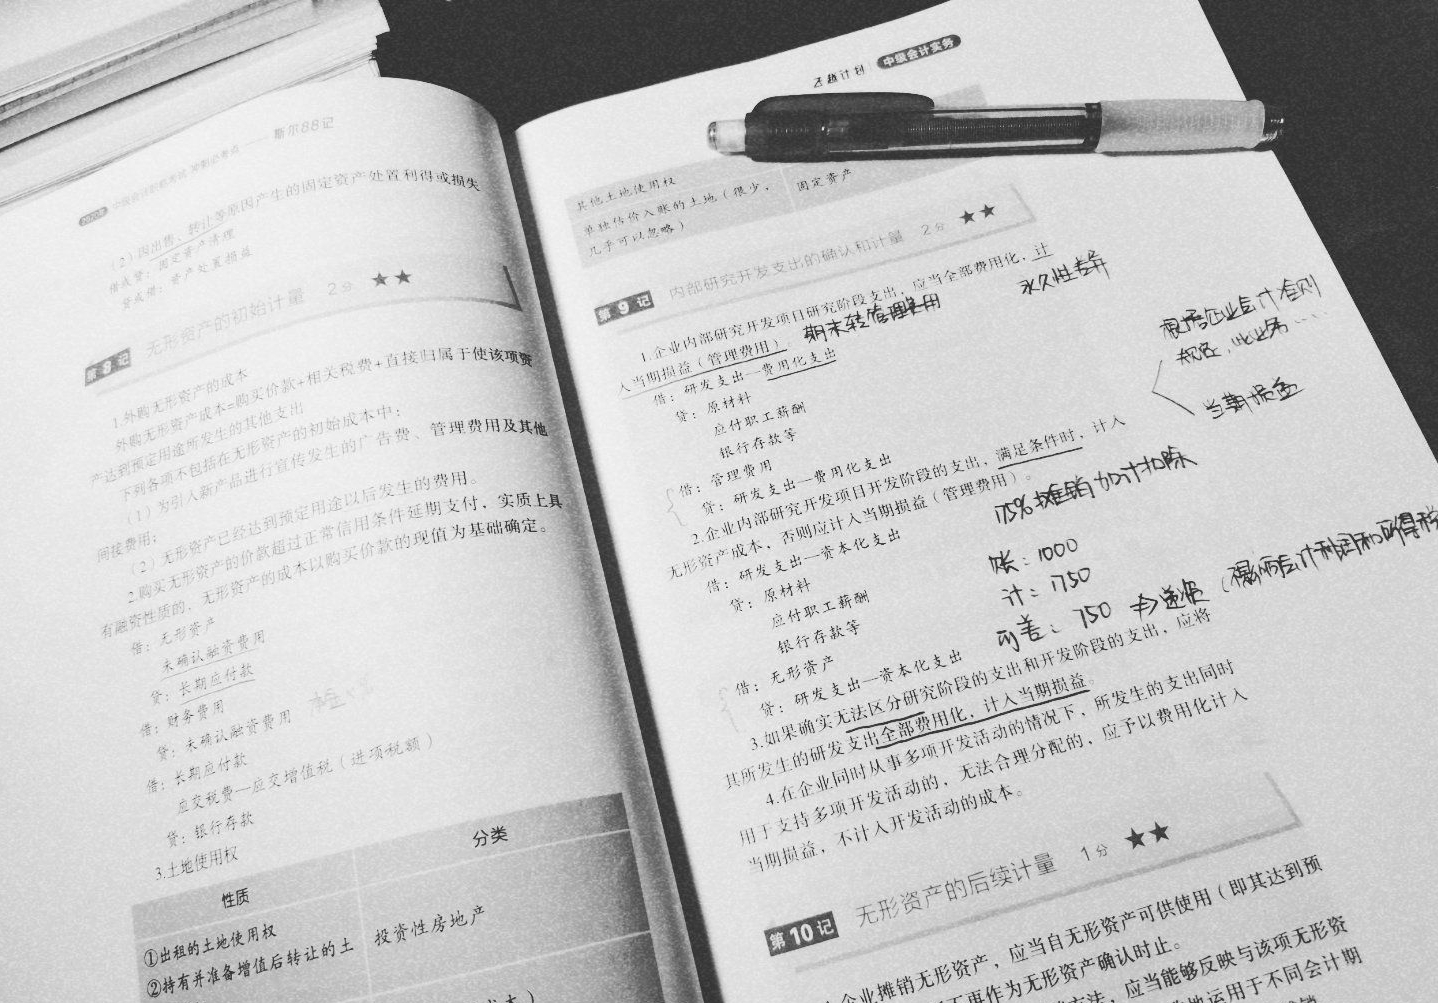 斯尔88记
2020年 中级会计职称考试
（2）因出售、转让等原因产生的固定资产处置利得或损失
借或贷：固定资产清理
贷或借：资产处置损益
第 8 记 无形资产的初始计量 2分 ★★
1.外购无形资产的成本
外购无形资产成本=购买价款+相关税费+直接归属于使该项资
产达到预定用途所发生的其他支出
下列各项不包括在无形资产的初始成本中：
（1）为引入新产品进行宣传发生的广告费、管理费用及其他
间接费用；
（2）无形资产已经达到预定用途以后发生的费用。
2.购买无形资产的价款超过正常信用条件延期支付，实质上具
有融资性质的，无形资产的成本以购买价款的现值为基础确定。
借：无形资产
未确认融资费用
贷：长期应付款
借：财务费用
贷：未确认融资费用
借：长期应付款
应交税费—应交增值税（进项税额）
贷：银行存款
3.土地使用权
性质 分类
①出租的土地使用权
②持有并准备增值后转让的土
投资性房地产
计划 中级会计实务
其他土地使用权
单独估价入账的土地（很少，
几乎可以忽略）
固定资产
第 9 记 内部研究开发支出的确认和计量 2分 ★★
1.企业内部研究开发项目研究阶段支出，应当全部费用化，计
入当期损益（管理费用）
期末转管理费用
永久性差异
借：研发支出—费用化支出
贷：原材料
应付职工薪酬
银行存款等
借：管理费用
贷：研发支出—费用化支出
根据企业会计准则
规定，此业务……
当期损益
2.企业内部研究开发项目开发阶段的支出，满足条件时，计入
无形资产成本，否则应计入当期损益（管理费用）。
175%摊销加计扣除
借：研发支出—资本化支出
贷：原材料
应付职工薪酬
银行存款等
借：无形资产
贷：研发支出—资本化支出
账：1000
计：1750
可差：750
3.如果确实无法区分研究阶段的支出和开发阶段的支出，应将
其所发生的研发支出全部费用化，计入当期损益。
4.在企业同时从事多项开发活动的情况下，所发生的支出同时
用于支持多项开发活动的，无法合理分配的，应予以费用化计入
当期损益，不计入开发活动的成本。
第 10 记 无形资产的后续计量 1分 ★★
企业摊销无形资产，应当自无形资产可供使用（即其达到预
不再作为无形资产确认时止。
方法，应当能够反映与该项无形资
地运用于不同会计期